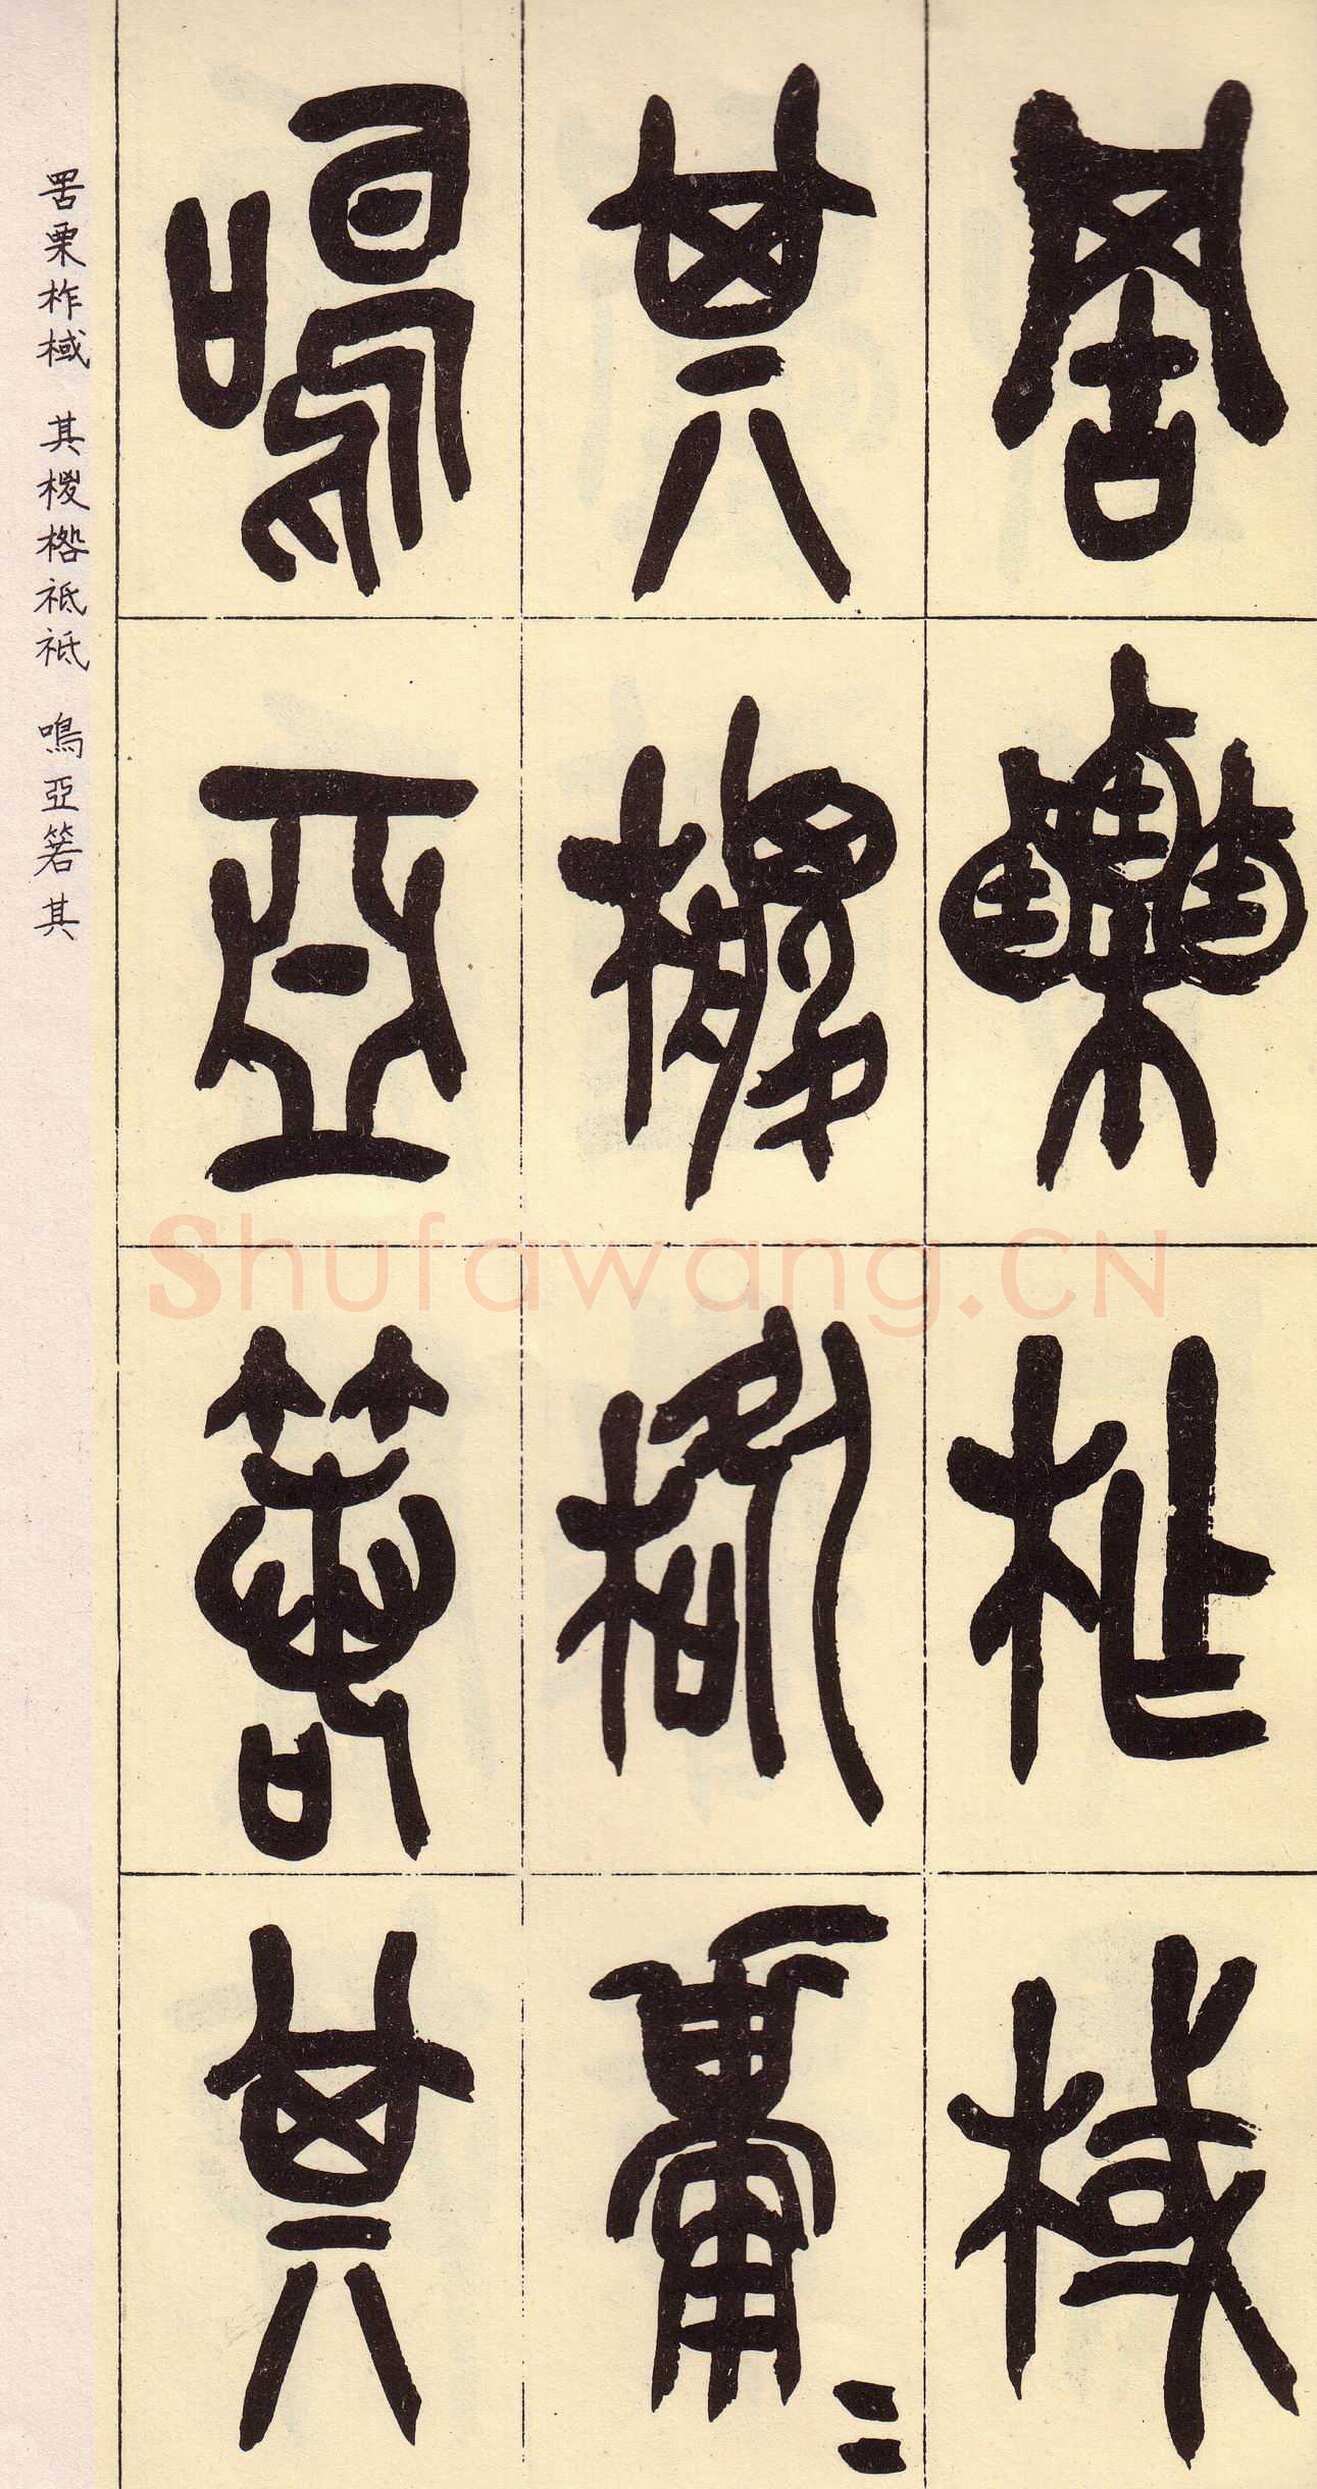 罟栗柞棫
其椶楁祗祗
鳴亞箬其
罟栗柞棫 其椶楁祗祗 鳴亞箬其
Shufawang.CN